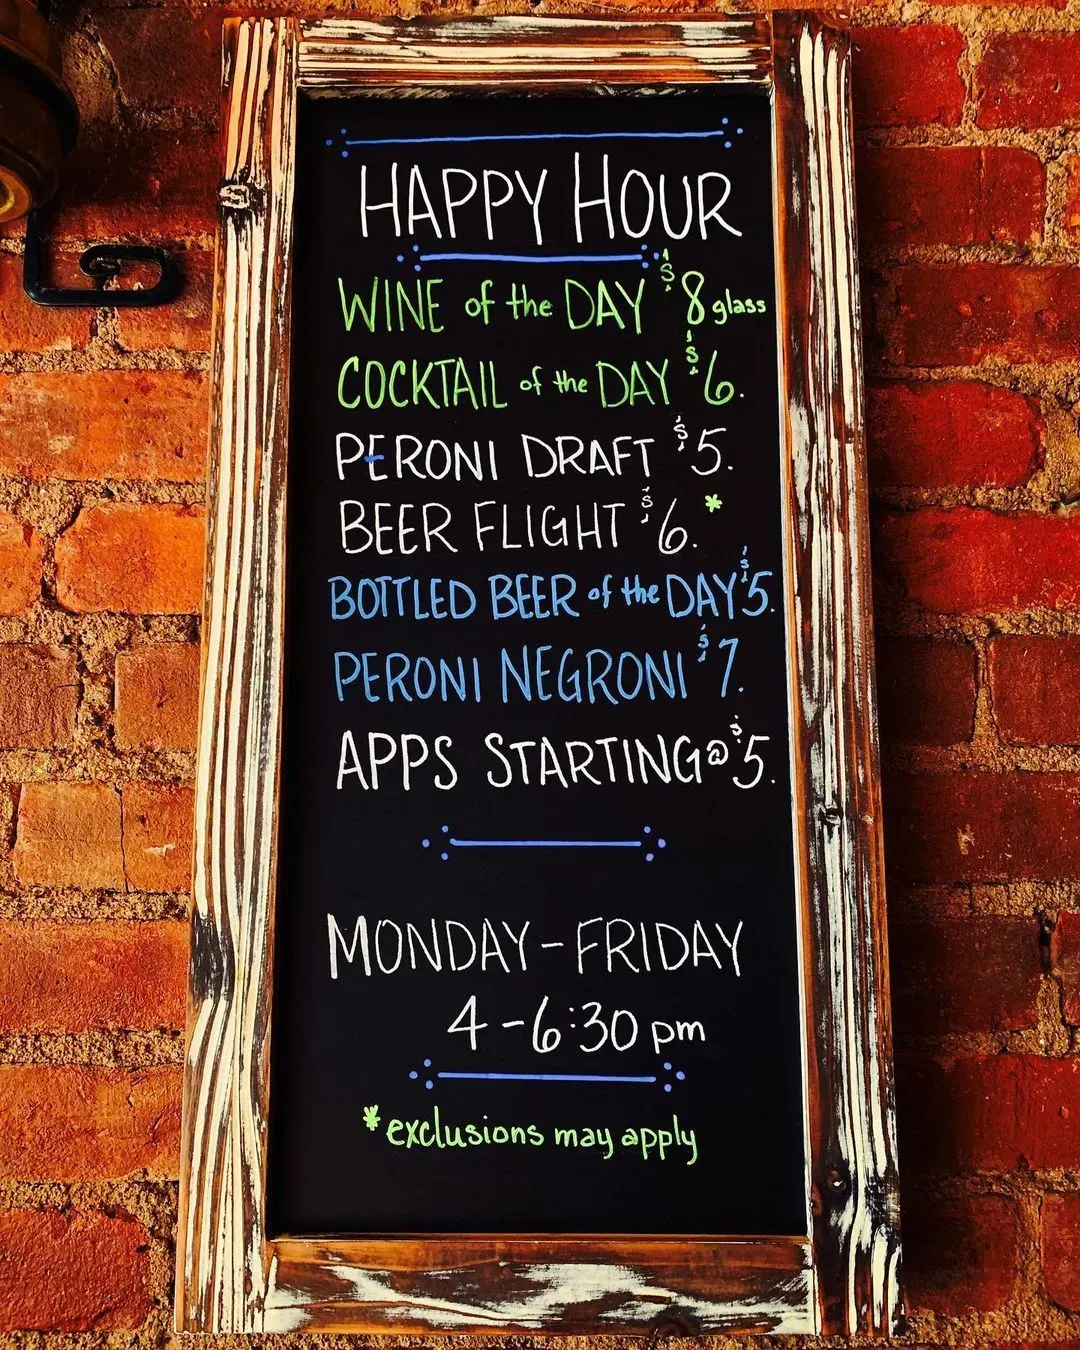 HAPPY HOUR
WINE of the DAY $8 glass
COCKTAIL of the DAY $6.
PERONI DRAFT $5.
BEER FLIGHT $6. *
BOTTLED BEER of the DAY $5.
PERONI NEGRONI $7.
APPS STARTING @ $5.
MONDAY - FRIDAY
4 - 6:30 pm
* exclusions may apply